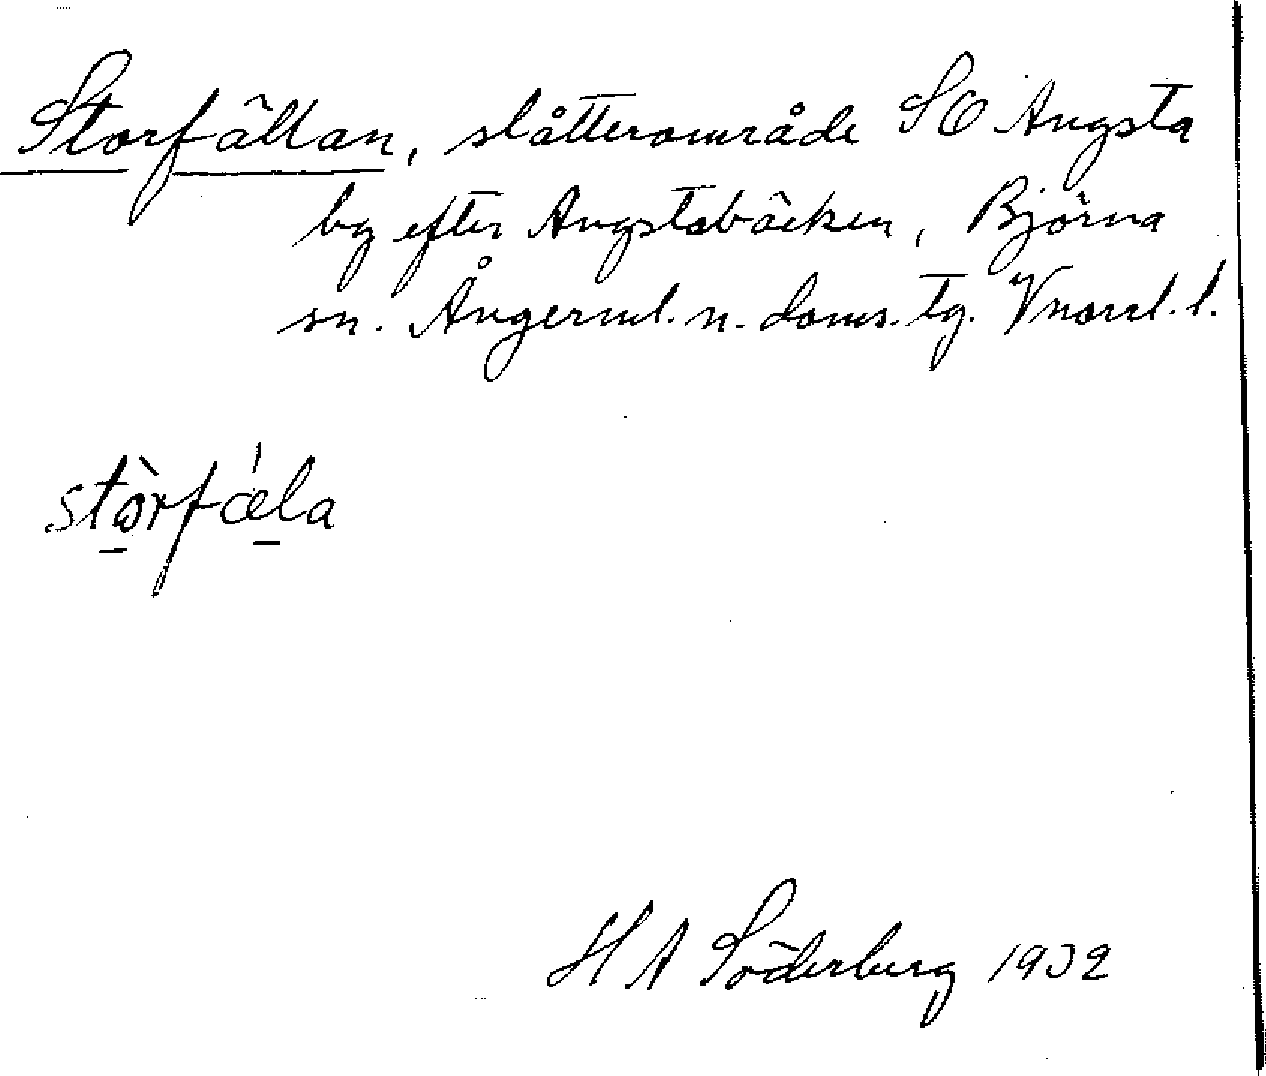 Storfällan, slåtterområde SO Angsta
by efter Angstabäcken, Björna
sn. Ångerml. n. doms. tg. Vnorrl. l.
stò̱rfǽ̱la
H A Söderberg 1932